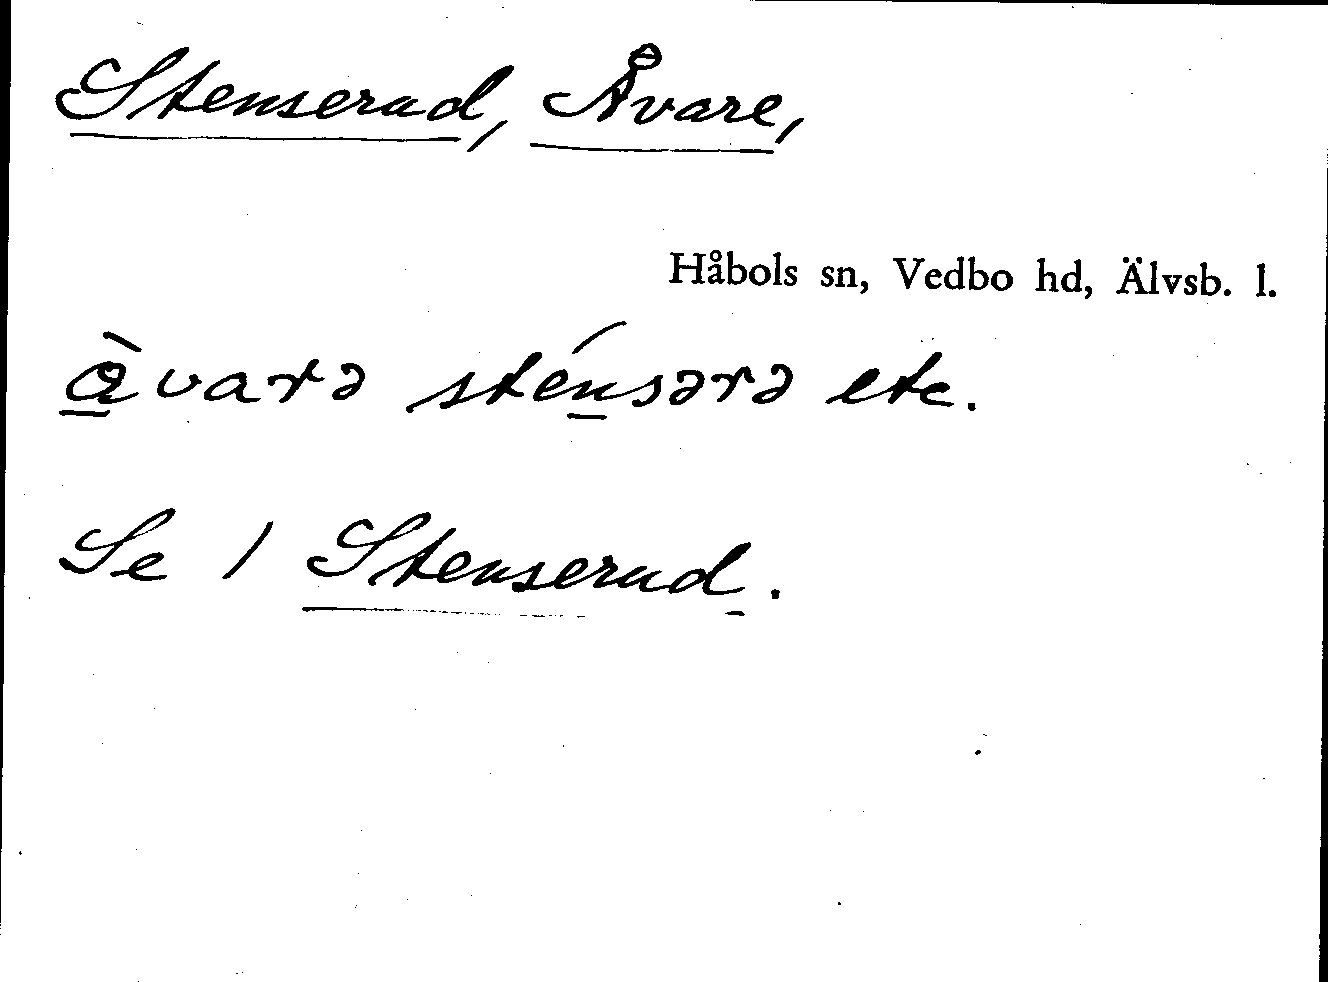 Stenserud, Åvare,
Håbols sn, Vedbo hd, Älvsb. l.
å̀varə sténsərə etc.
Se 1 Stenserud.